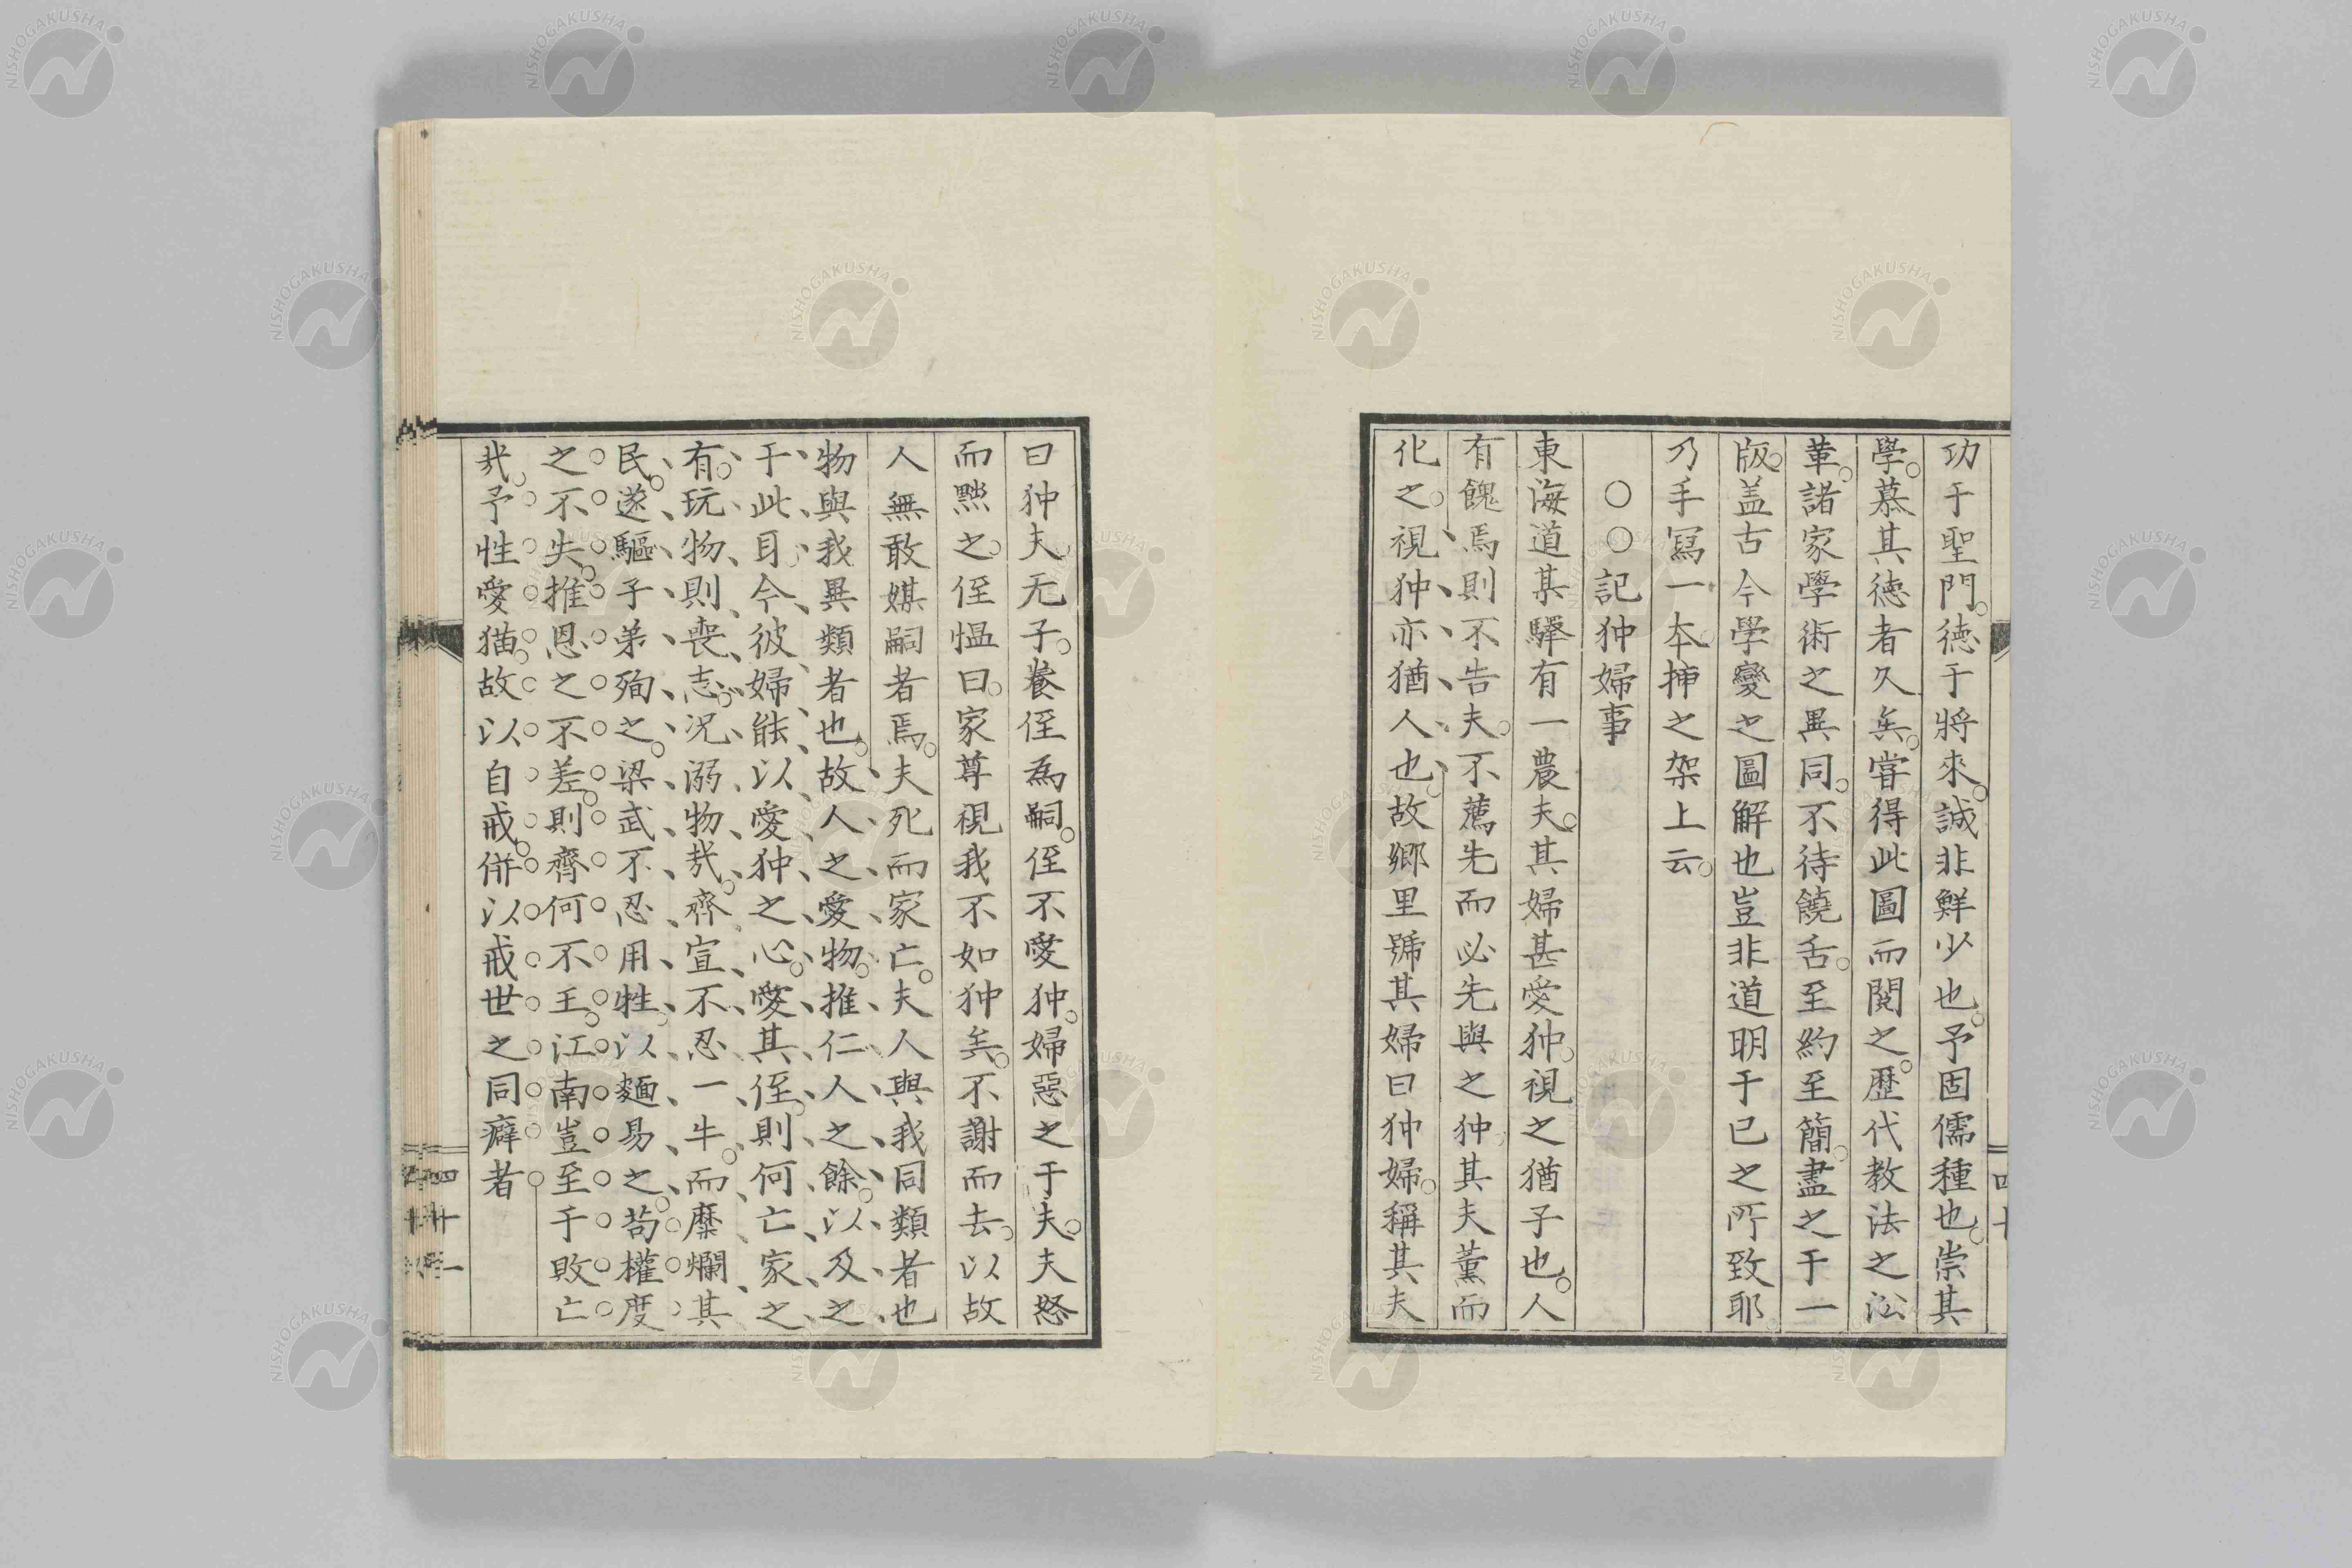 功于聖門。德于將來。誠非鮮少也。予固儒種也。崇其
學。慕其德者久矣。嘗得此圖而閱之。歷代教法之沿
革。諸家學術之異同。不待饒舌。至約至簡。盡之于一
版。盖古今學變之圖解也豈非道明于已之所致耶
乃手寫一本挿之架上云。
○○記狆婦事
東海道某驛有一農夫。其婦甚愛狆。視之猶子也。人
有餽焉則不告夫。不薦先而必先與之狆。其夫薰而
化之。視狆亦猶人也。故鄉里號其婦曰狆婦。稱其夫
曰狆夫。无子。養侄為嗣。侄不愛狆。婦惡之于夫。夫怒
而黜之。侄愠曰。家尊視我不如狆矣。不謝而去。以故
人無敢媒嗣者焉。夫死而家亡。夫人與我同類者也
物與我異類者也。故人之愛物。推仁人之餘。以及之
于此耳。今彼婦能以愛狆之心。愛其侄。則何亡家之
有。玩物則喪志。況溺物㢤。齊宣不忍一牛。而糜爛其
民。遂驅子弟殉之。梁武不忍用牲。以麵易之。苟權度
之不失。推恩之不差。則齊何不王。江南豈至于敗亡
㢤。予性愛猫。故以自戒。併以戒世之同癖者
四十一